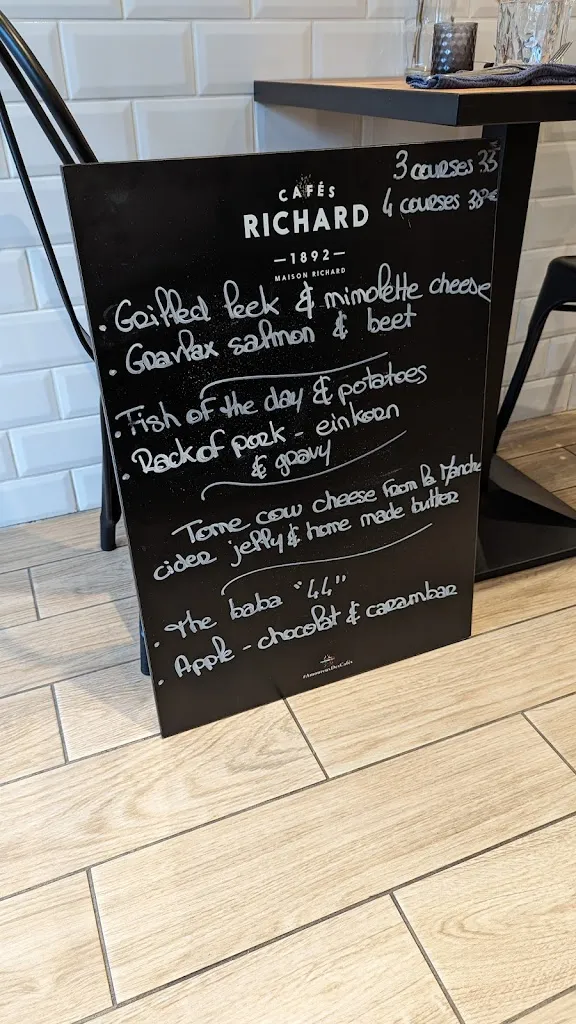 3 courses 33€
4 courses 38€
CAFÉS
RICHARD
—1892—
MAISON RICHARD
• Grilled leek & mimolette cheese
• Gravlax salmon & beet
• Fish of the day & potatoes
• Rack of pork - einkorn
& gravy
Tome cow cheese from la Manche
cider jelly & home made butter
• The baba "44"
• Apple - chocolat & carambar
#AmoureuxDesCafés